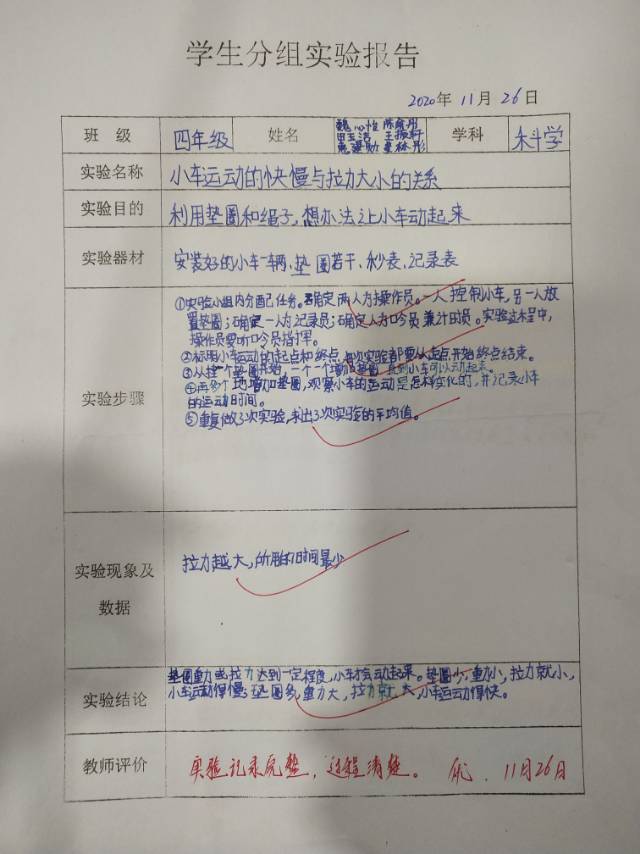 学生分组实验报告
2020年 11月 26日
班 级 四年级 姓名 陈俞彤 学科 科学
实验名称 小车运动的快慢与拉力大小的关系
实验目的 利用垫圈和绳子,想办法让小车动起来
实验器材 安装好的小车一辆、垫圈若干、秒表、记录表
实验步骤
①实验小组内分配任务。确定两人为操作员。一人控制小车,另一人放
置垫圈;确定一人为记录员;确定一人为口令员兼计时员。实验过程中,
操作员要听口令员指挥。
②标明小车运动的起点和终点,每次实验都要从起点开始终点结束。
③从挂一个垫圈开始,一个一个增加垫圈,直到小车可以动起来。
④再多个地增加垫圈,观察小车的运动是怎样变化的,并记录小车
的运动时间。
⑤重复做3次实验,求出3次实验的平均值。
实验现象及
数据
拉力越大,所用的时间最少
实验结论
垫圈重力或拉力达到一定程度,小车才会动起来。垫圈少,重力小,拉力就小,
小车运动得慢;垫圈多,重力大,拉力就大,小车运动得快。
教师评价 实验记录完整,过程清楚。 优. 11月26日